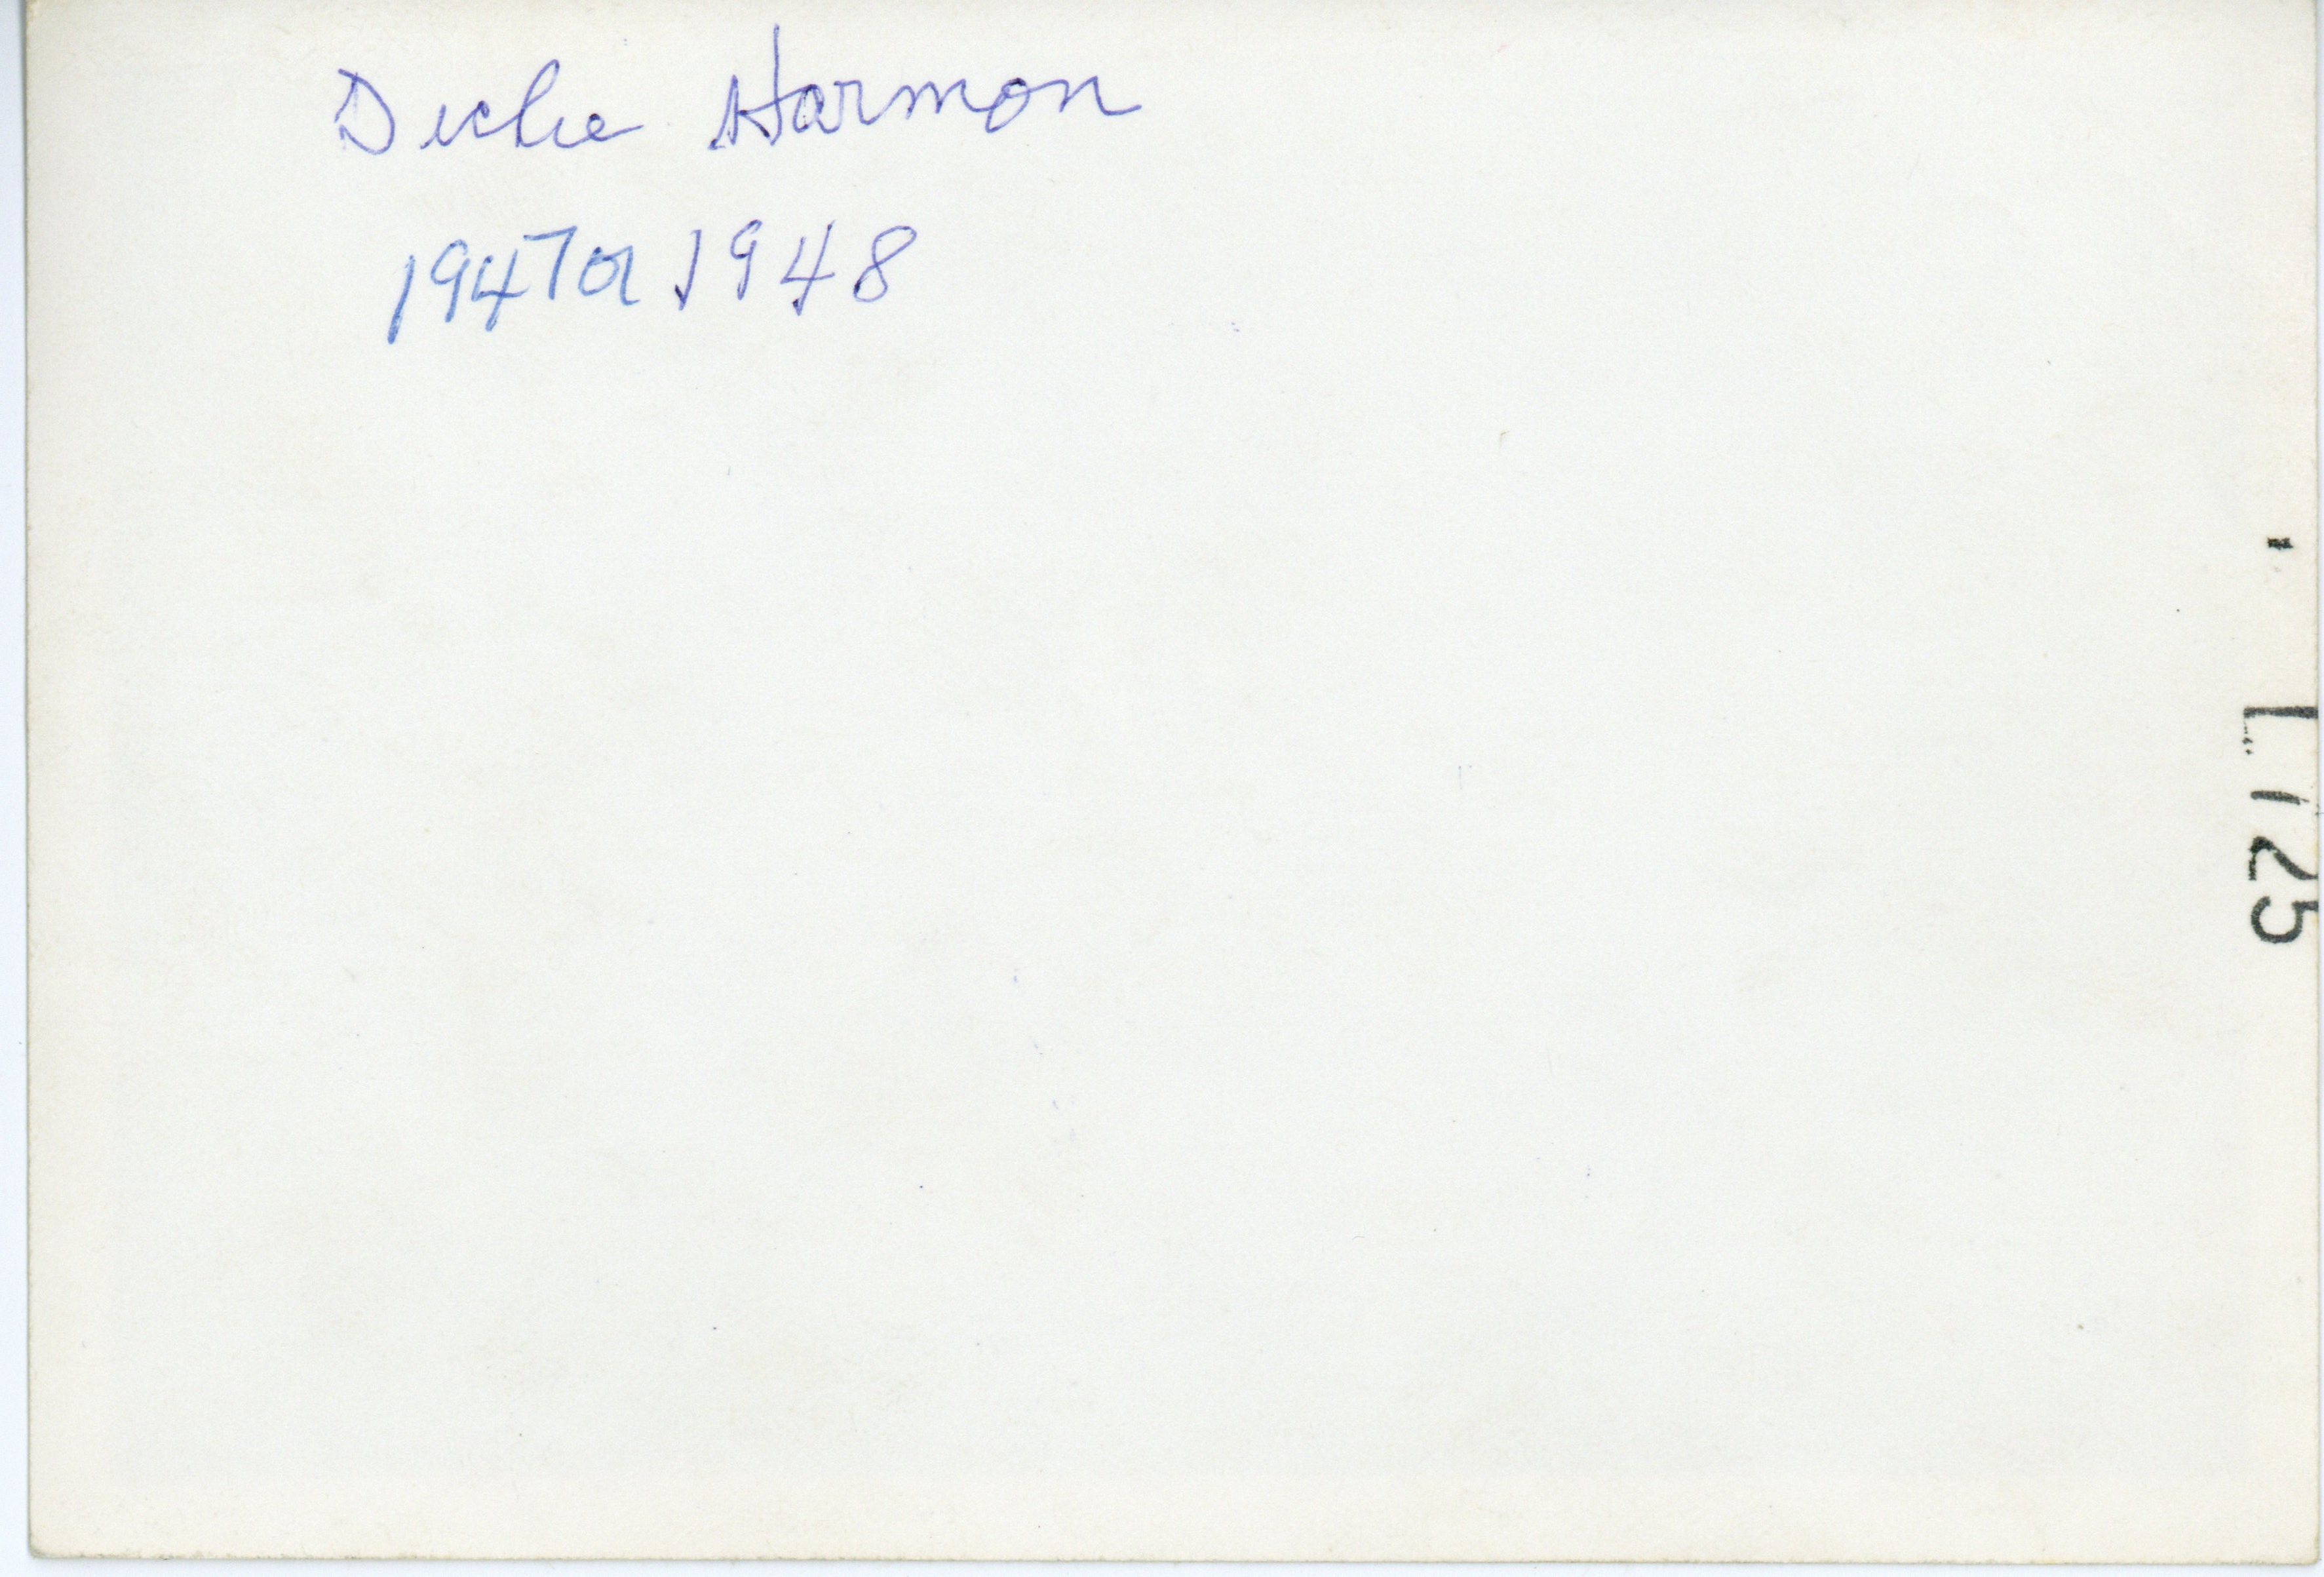 Dickie Harmon
1947 or 1948